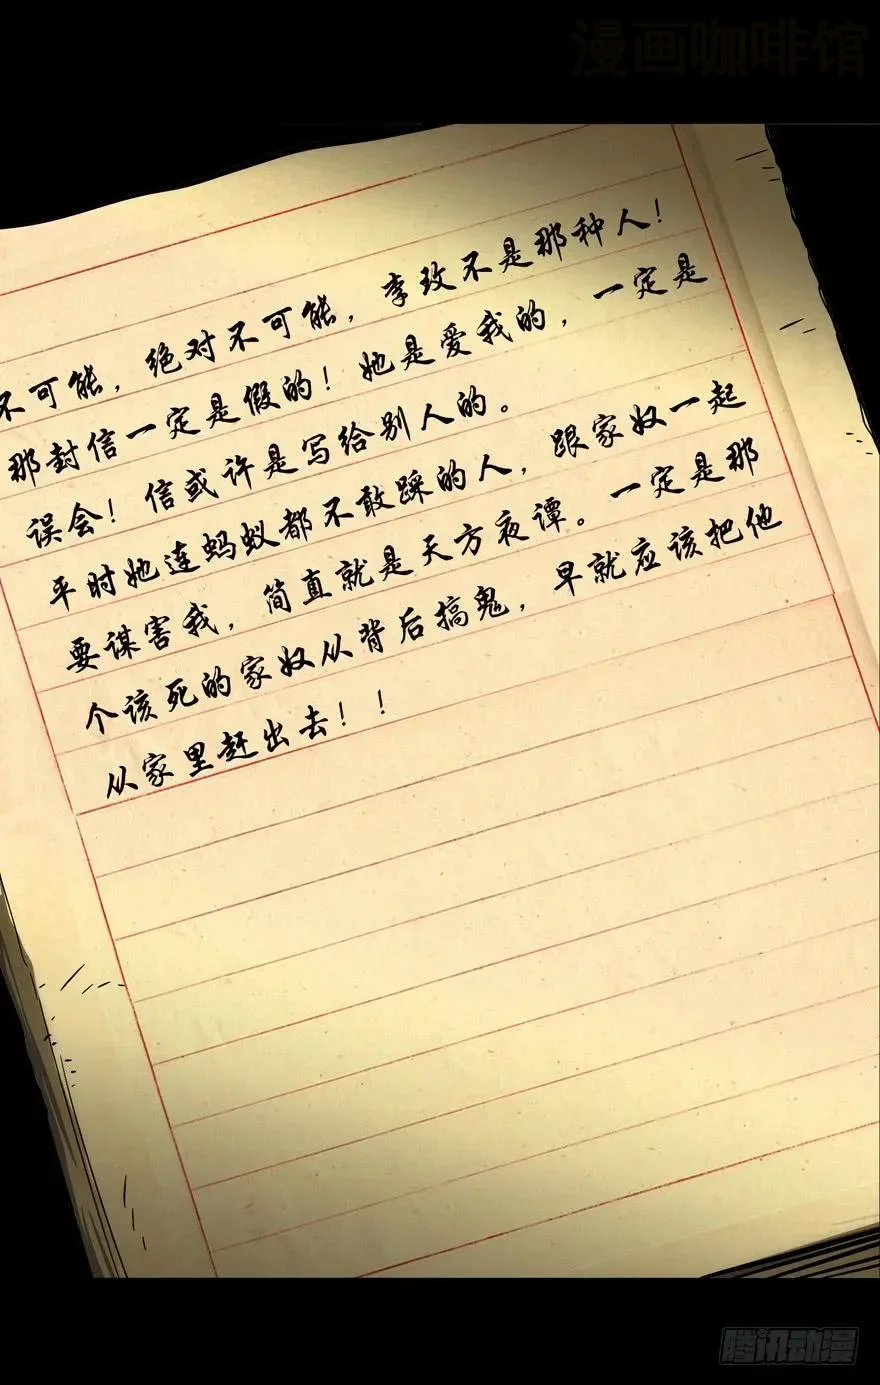 漫画咖啡馆
不可能，绝对不可能，李玫不是那种人！
那封信一定是假的！她是爱我的，一定是
误会！信或许是写给别人的。
平时她连蚂蚁都不敢踩的人，跟家奴一起
要谋害我，简直就是天方夜谭。一定是那
个该死的家奴从背后搞鬼，早就应该把他
从家里赶出去！！
腾讯动漫